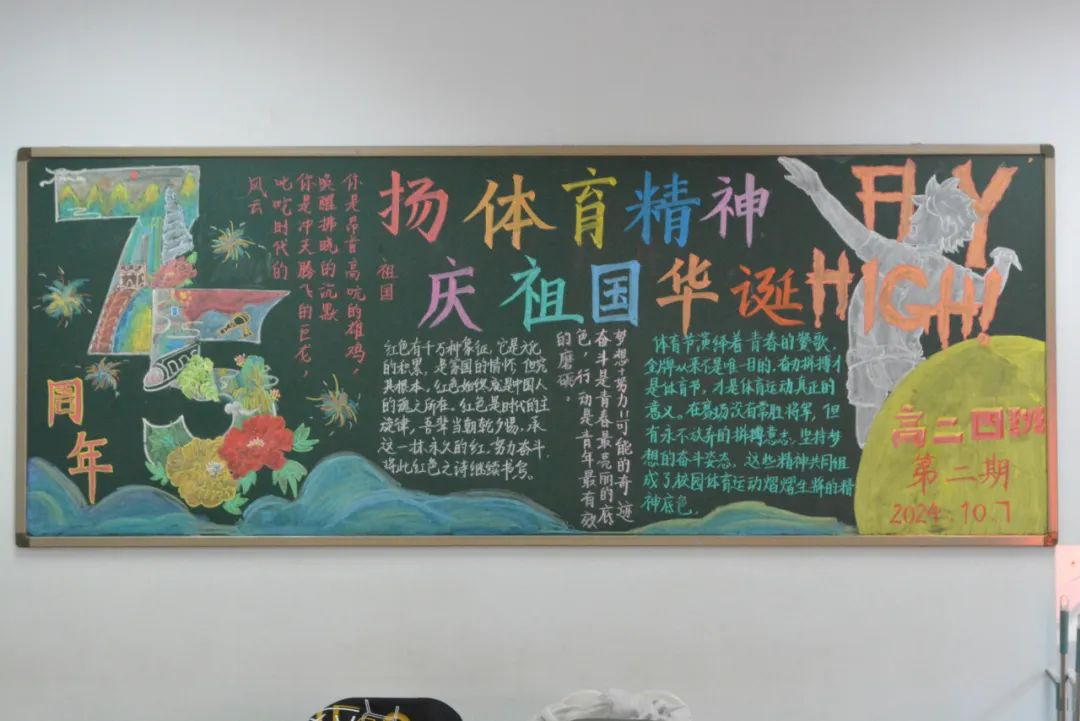 75
周年
祖国
你是昂首高吭的雄鸡，
唤醒拂晓的沉默
你是冲天腾飞的巨龙，
叱咤时代的
风云
扬体育精神
庆祖国华诞
FLY
HIGH!
红色有千万种象征，它是文化
的积累，是家国的情怀，但究
其根本，红色始终应是中国人
的魂之所在。红色是时代的主
旋律，吾辈当朝乾夕惕，承
这一抹永久的红，努力奋斗，
将此红色之诗继续书写。
梦想+努力=可能的奇迹
奋斗是青春最亮丽的底
色，行动是青年最有效
的磨砺。
体育节演绎着青春的赞歌，
金牌从来不是唯一目的，奋力拼搏才
是体育节，才是体育运动真正的
意义。在赛场没有常胜将军，但
有永不放弃的拼搏意志。坚持梦
想的奋斗姿态，这些精神共同组
成了校园体育运动熠熠生辉的精
神底色。
高二四班
第二期
2024.10.7